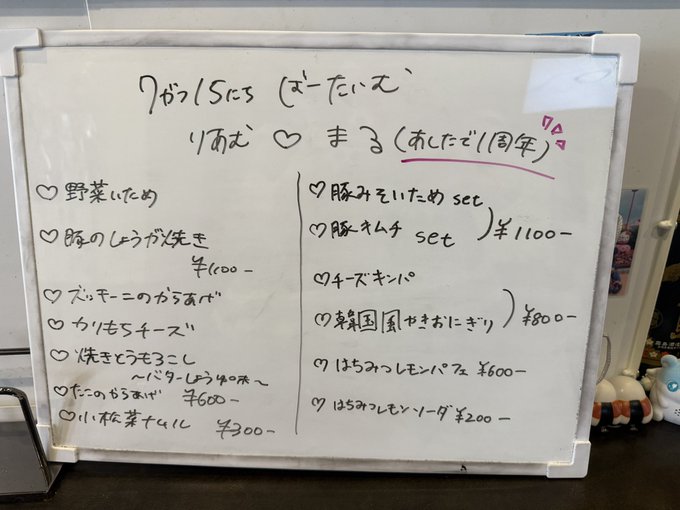 7がつ15にち ばーたいむ
りあむ ♡ まる(あしたで1周年)
♡野菜いため
♡豚のしょうが焼き
¥1100-
♡ズッキーニのからあげ
♡カリもちチーズ
♡焼きとうもろこし
~バターしょうゆ味~
♡たこのからあげ ¥600-
♡小松菜ナムル ¥300-
♡豚みそいため set
♡豚キムチ set )¥1100-
♡チーズキンパ
♡韓国風やきおにぎり )¥800-
♡はちみつレモンパフェ ¥600-
♡はちみつレモンソーダ ¥200-